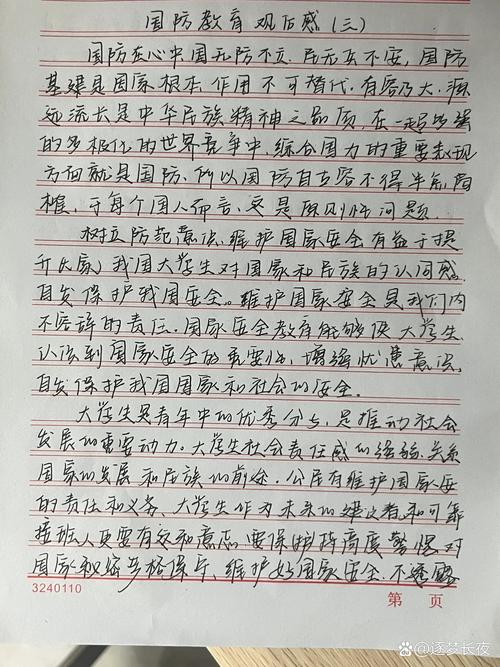 国防教育观后感（三）
国防在心中国无防不立，民无兵不安，国防
基建是国家根本，作用不可替代。有容乃大，源
远流长是中华民族精神之品质，在一超多强
的多极化的世界竞争中，综合国力的重要表现
方面就是国防，所以国防自古容不得半点
于每个国人而言，这是原则性问题。
树立防范意识，维护国家安全有益于提
升民家，我国大学生对国家和民族的认同感
自发保护我国安全。维护国家安全是我们内
不容辞的责任。国家安全教育能够使大学生
认识到国家安全的重要性，增强忧患意识，
自发保护我国国家和社会的安全。
大学生是青年中的优秀分子，是推动社会
发展的重要动力。大学生社会责任感的强弱，关系
国家的发展和民族的前途。公民有维护国家安
的责任和义务，大学生作为未来的建设者和可靠
接班人更要有这种意志，要保护持高度警惕，对
国家秘密严格保守，维护好国家安全，不透露
3240110
第 页
逐梦长夜